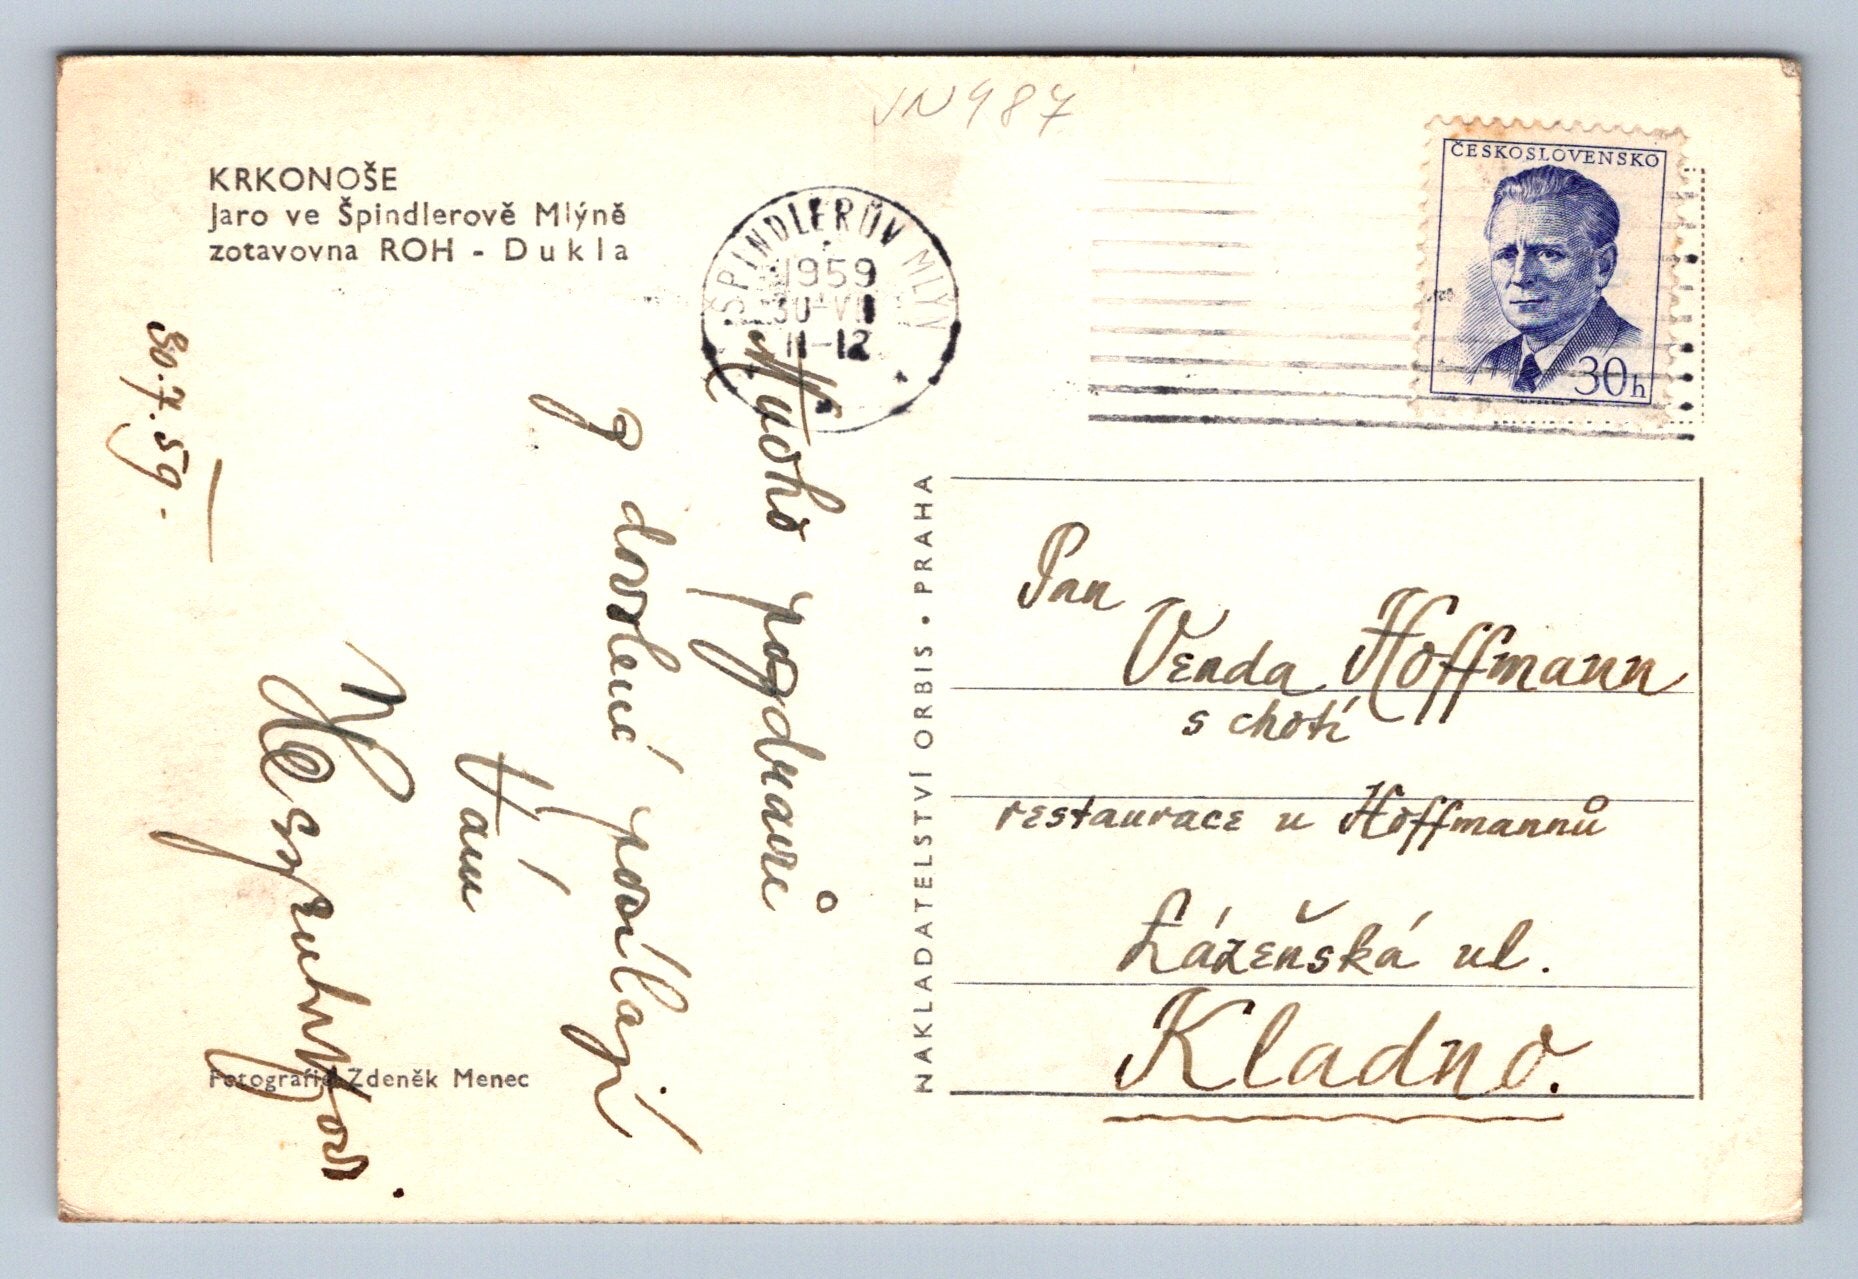 VN987
KRKONOŠE
Jaro ve Špindlerově Mlýně
zotavovna ROH - Dukla
ŠPINDLERŮV MLÝN
1959
30 VII
11-12
ČESKOSLOVENSKO
30h
30.7.59.
Mnoho pozdravů
z dovolené posílají
Vám
NAKLADATELSTVÍ ORBIS • PRAHA
Pan
Venda Hoffmann
s chotí
restaurace u Hoffmannů
Lázeňská ul.
Kladno.
Fotografie Zdeněk Menec